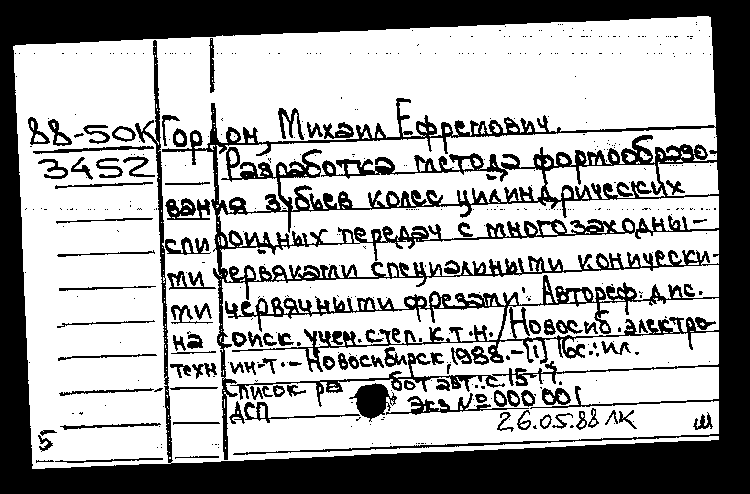 88-50К Гордон, Михаил Ефремович.
3452 Разработка метода формообразо-
вания зубьев колес цилиндрических
спироидных передач с многозаходны-
ми червяками специальными конически-
ми червячными фрезами: Автореф. дис.
на соиск. учен. степ. к.т.н. / Новосиб. электро-
техн ин-т. - Новосибирск, 1988. - [1], 16с.: ил.
Список работ авт.: с. 15-17.
ДСП Экз № 000 001
26.05.88 ЛК ш
5